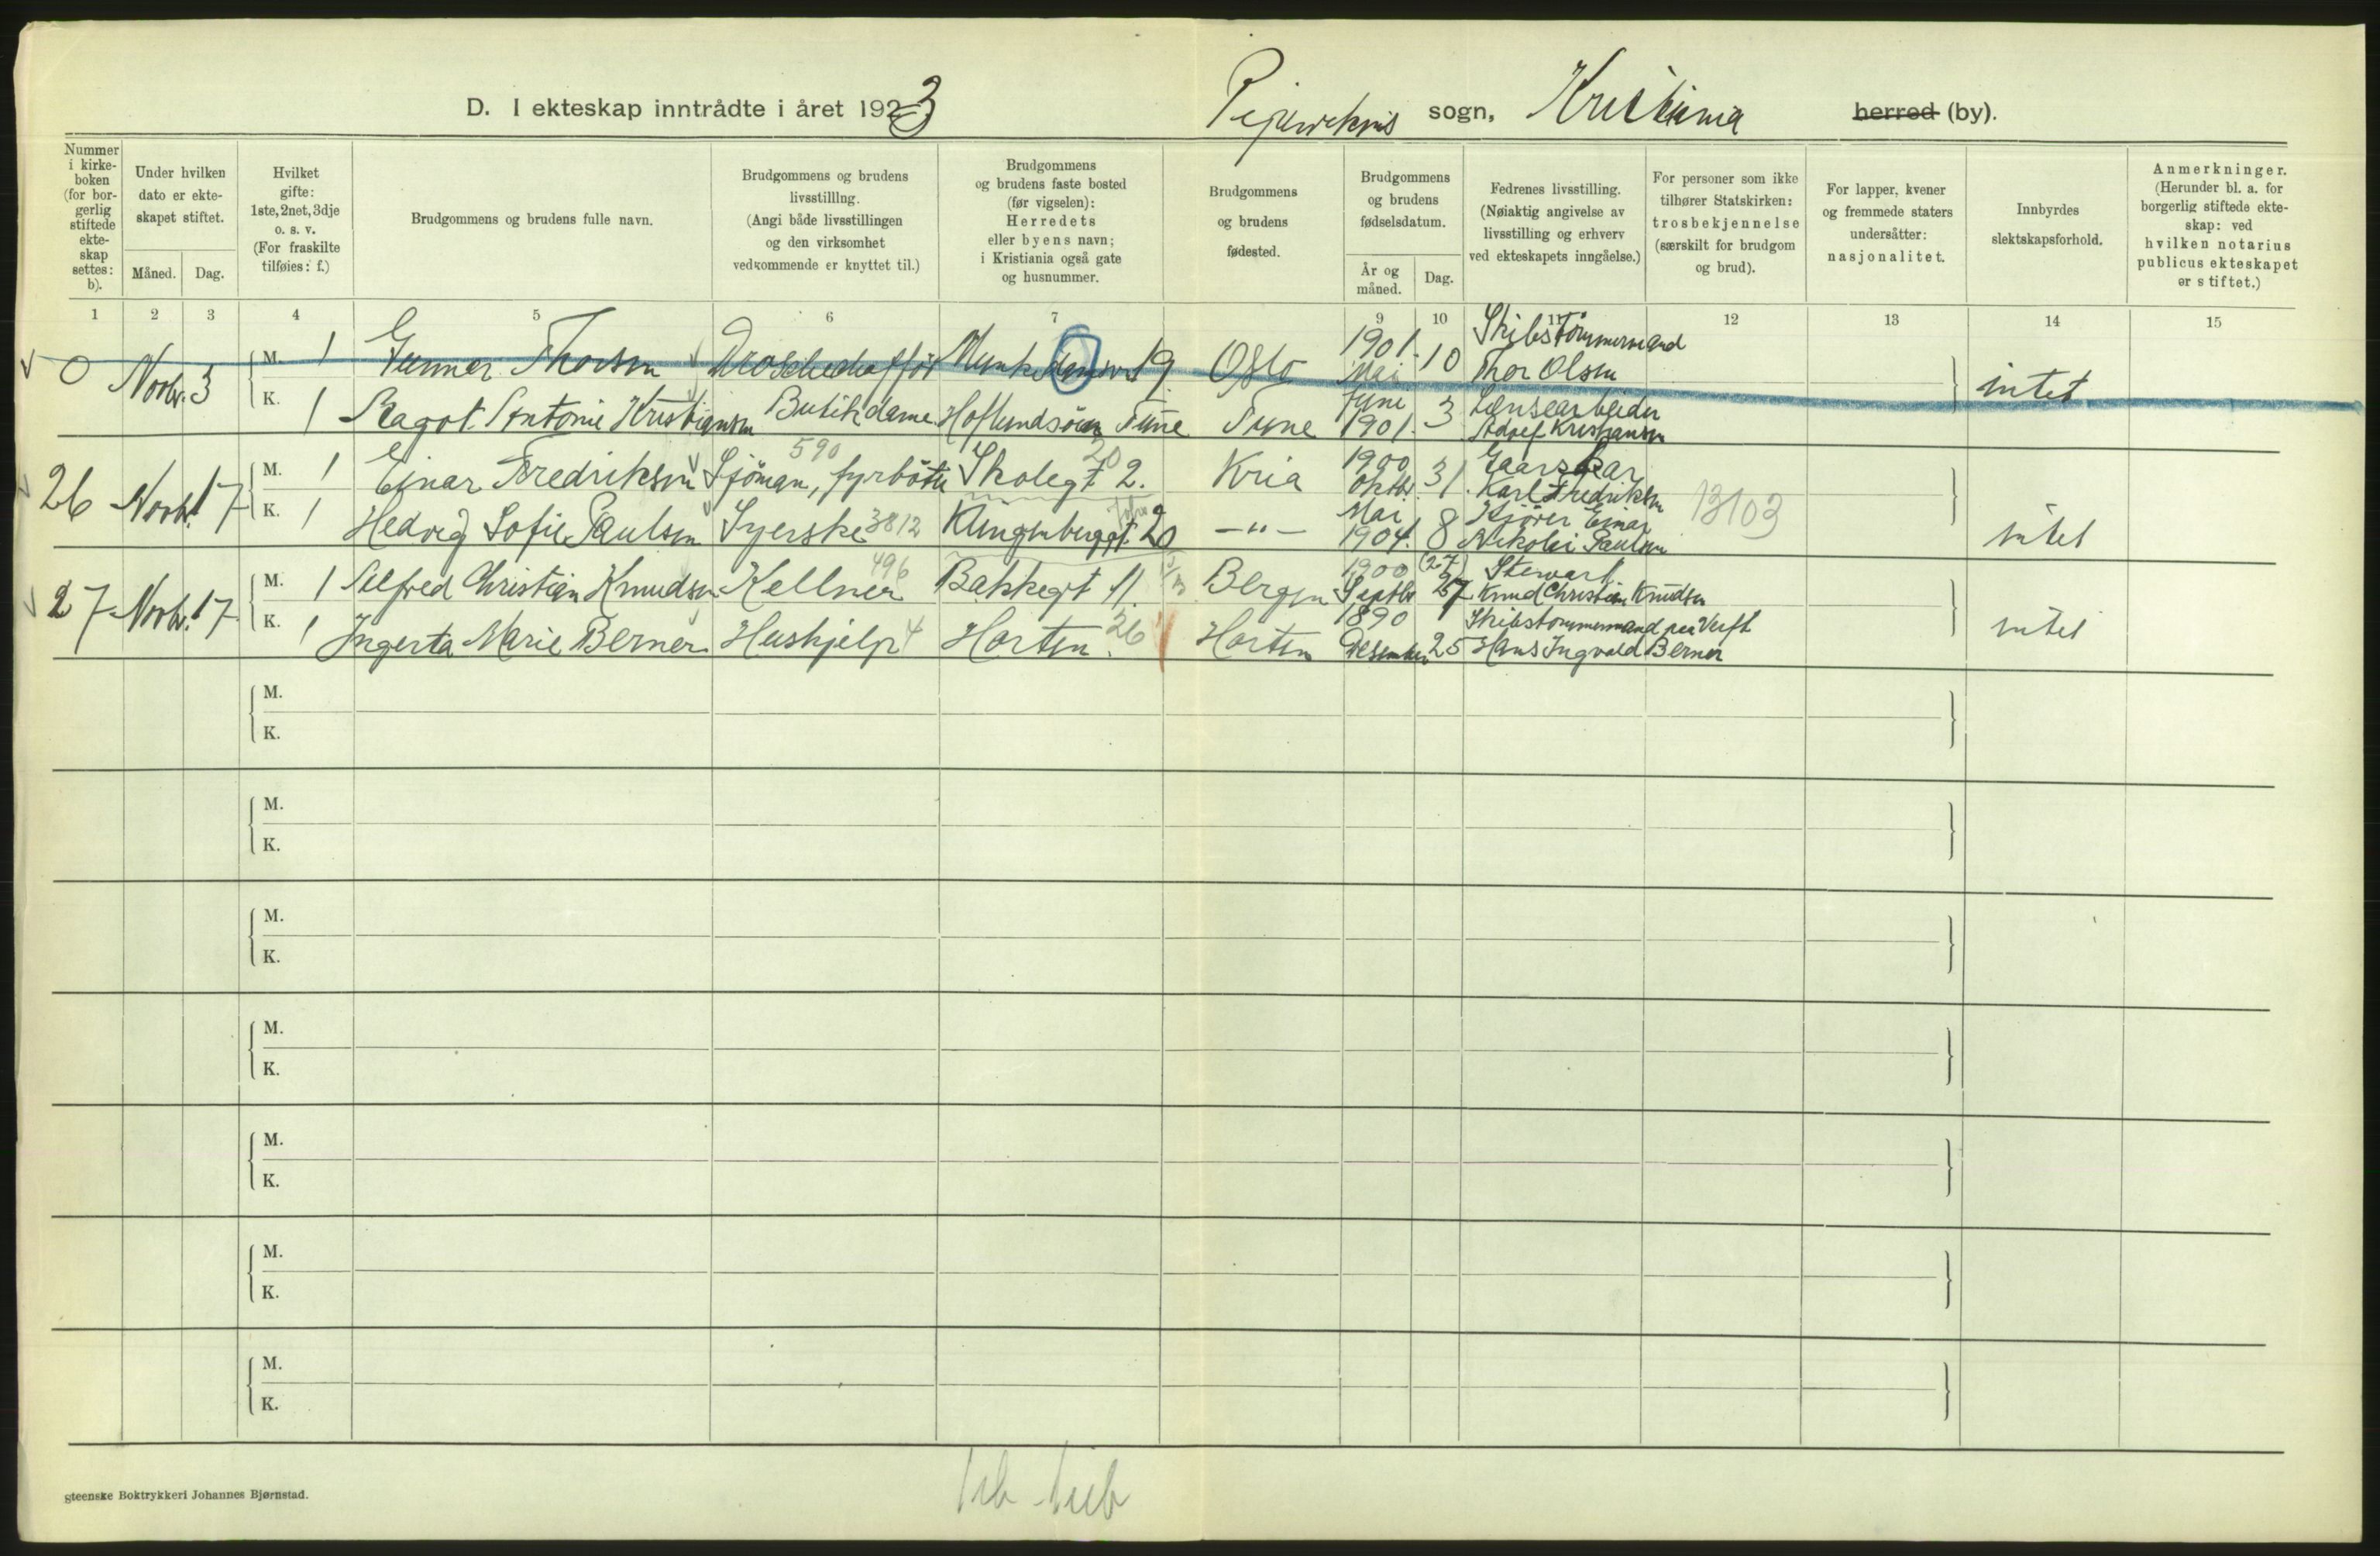 D. I ekteskap inntrådte i året 1923
sogn, Kristiania herred (by).
Nummer i kirke-boken (for bor-gerlig stiftede ekte-skap settes: b).
Under hvilken dato er ekte-skapet stiftet.
Måned. Dag.
Hvilket gifte: 1ste, 2net, 3dje o. s. v. (For fraskilte tilføies: f.)
Brudgommens og brudens fulle navn.
Brudgommens og brudens livsstilllng. (Angi både livsstillingen og den virksomhet vedkommende er knyttet til.)
Brudgommens og brudens faste bosted (før vigselen): Herredets eller byens navn; i Kristiania også gate og husnummer.
Brudgommens og brudens fødested.
Brudgommens og brudens fødselsdatum.
År og måned. Dag.
Fedrenes livsstilling. (Nøiaktig angivelse av livsstilling og erhverv ved ekteskapets inngåelse.)
For personer som ikke tilhører Statskirken: trosbekjennelse (særskilt for brudgom og brud).
For lapper, kvener og fremmede staters undersåtter: nasjonalitet.
Innbyrdes slektskapsforhold.
Anmerkninger. (Herunder bl. a. for borgerlig stiftede ekte-skap: ved hvilken notarius publicus ekteskapet er stiftet.)
1 2 3 4 5 6 7 9 10 11 12 13 14 15
0 Novbr. 3 M. 1 Gunnar Thorsen Droschechafför Munkedamsv. 19 Oslo 1901. Mai 10 Skibstömmermand Thor Olsen intet
K. 1 Ragot Antonie Kristiansen Butikdame Tune Tune Juni 1901. 3 Lensearbeider Adolf Kristiansen
590 20
26 Novbr. 17 M. 1 Einar Fredriksen Sjöman, fyrböter Skolegt 2. Kria 1900 Oktbr. 31. Gaarskar Karl Fredriksen 13103 intet
K. 1 Hedvig Sofie Paulsen Syerske 3812 Klingenberggt. 20 —"— Mai 1904. 8 Kjörer Einar Nikolai Paulsen
496
27 Novbr. 17 M. 1 Alfred Christian Knudsen Kellner Bakkegt 11. Bergen 1900 Septbr (27) 27 Stewart Knud Christian Knudsen intet
K. 1 Ingerta Marie Berner Hushjelp 4 Horten. 26 Horten 1890 Desember 25 Skibstömmermand paa Verft Hans Ingvald Berner
M.
K.
M.
K.
M.
K.
M.
K.
M.
K.
M.
K.
M.
K.
gteenske Boktrykkeri Johannes Bjørnstad.